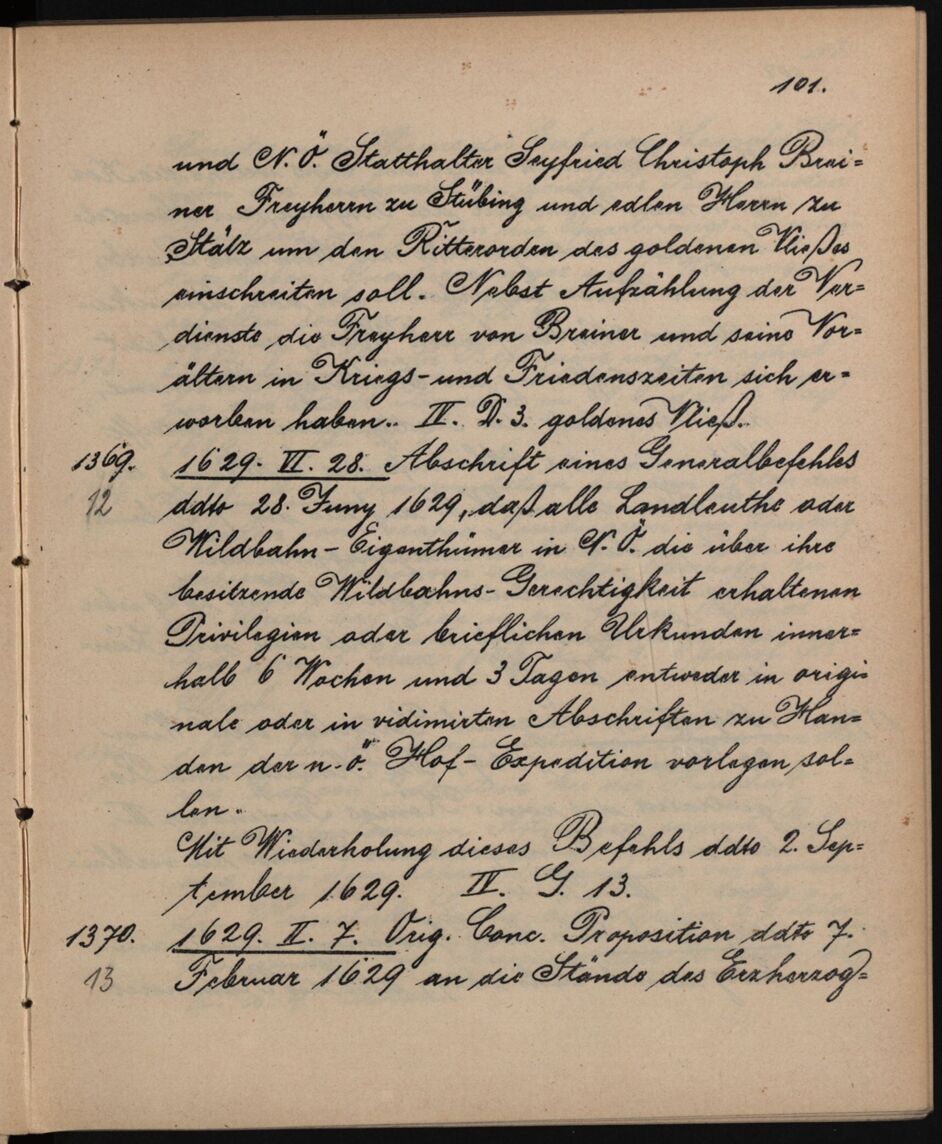 101.
und N. Ö. Statthalter Seyfried Christoph Brei=
ner Freyherrn zu Stübing und edlen Herrn zu
Stälz um den Ritterorden des goldenen Vließes
einschreiten soll. Nebst Aufzählung der Ver=
dienste die Freyherr von Breiner und seine Vor=
ältern in Kriegs- und Friedenszeiten sich er=
worben haben. IV. D. 3. goldenes Vließ.
1369. 1629. VI. 28. Abschrift eines Generalbefehles
12 ddto 28. Juny 1629, daß alle Landleuthe oder
Wildbahn-Eigenthümer in N. Ö. die über ihre
besitzende Wildbahns-Gerechtigkeit erhaltenen
Privilegien oder brieflichen Urkunden inner=
halb 6 Wochen und 3 Tagen entweder in origi=
nale oder in vidimirten Abschriften zu Han=
den der n. ö. Hof-Expedition vorlegen sol=
len.
Mit Wiederholung dieses Befehls ddto 2. Sep=
tember 1629. IV. G. 13.
1370. 1629. II. 7. Orig. Conc. Proposition ddto 7.
13 Februar 1629 an die Stände des Erzherzog=